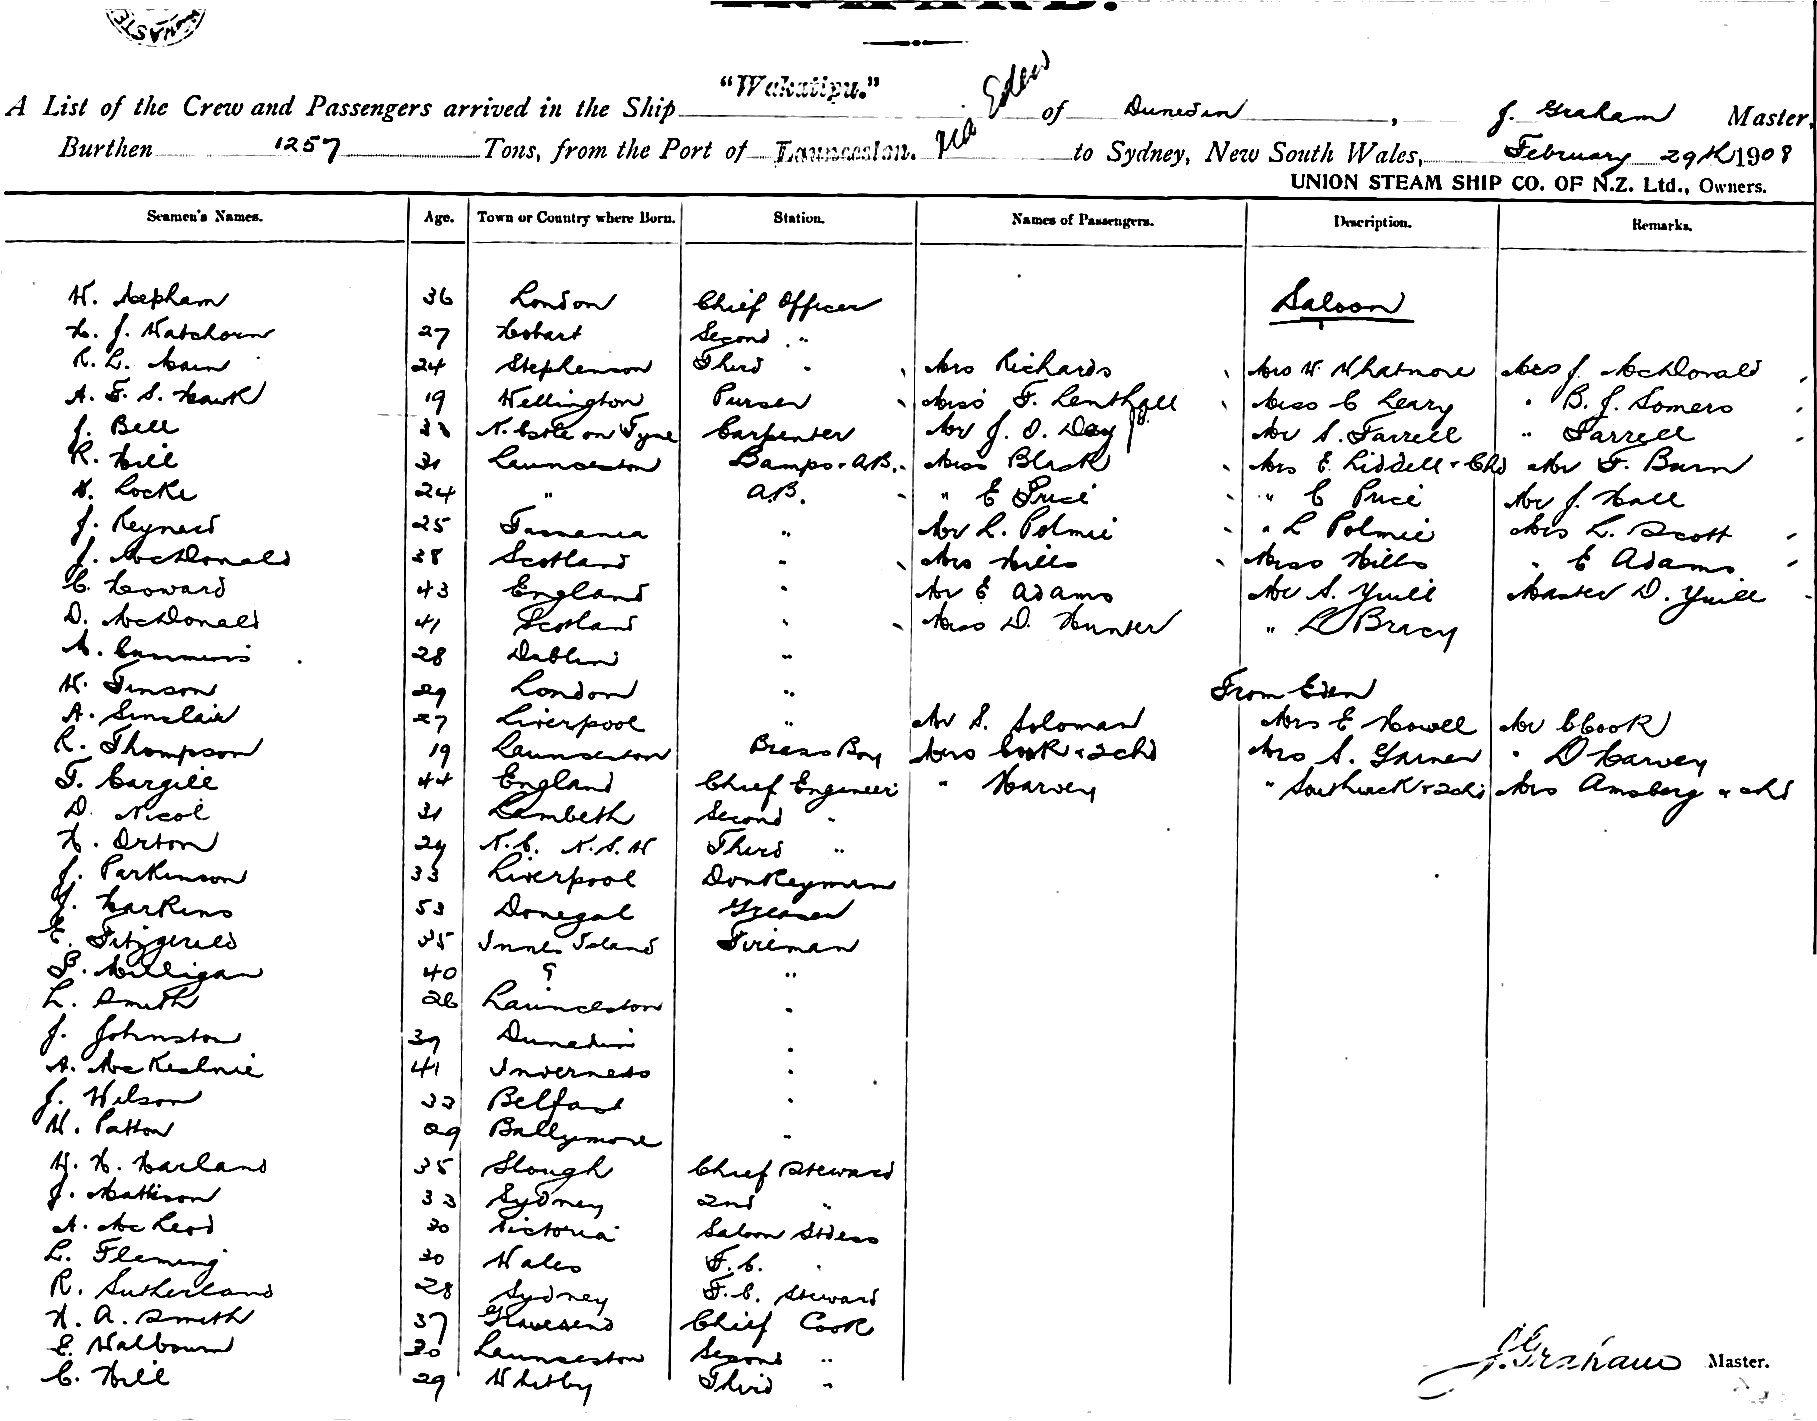 "Wakatipu."
A List of the Crew and Passengers arrived in the Ship via Eden of Dunedin, J. Graham Master,
Burthen 1257 Tons, from the Port of Launceston. to Sydney, New South Wales, February 29th 1908
UNION STEAM SHIP CO. OF N.Z. Ltd., Owners.
Seamen's Names. Age. Town or Country where Born. Station. Names of Passengers. Description. Remarks.
W. Mepham 36 London Chief Officer Saloon
H. J. Watchorn 27 Hobart Second "
R. L. Main 24 Stephenson Third " Mrs Richards Mrs W. Whatmore Miss J. McDonald
A. F. S. Hawk 19 Wellington Purser Miss F. Lenthall Miss C Leary " B. J. Somers
J. Bell 33 N. Castle on Tyne Carpenter Mr J. O. Day Mr S. Farrell " Farrell
R. Hill 31 Launceston Lamps & A.B. Miss Black Mrs E. Liddell & Chd Mr F. Burn
W. Locke 24 " A.B. " E Price " C Price Mr J. Hall
J. Reynard 25 Tasmania " Mr L. Polmie " L Polmie Mrs L. Scott
J. McDonald 38 Scotland " Mrs Hills Miss Hills " E Adams
C. Howard 43 England " Mr E Adams Mr S. Yuill Master D. Yuill
D. McDonald 41 Scotland " Miss D. Hunter " L Bracy
M. Cummins 28 Dublin "
W. Tinson 29 London " From Eden
A. Sinclair 27 Liverpool " Mr S. Soloman Mrs E Howell Mr C Cook
R. Thompson 19 Launceston Brass Boy Mrs Cook & 2 chd Mrs S. Garner " D Harvey
T. Cargill 44 England Chief Engineer " Harvey " Southwick & 2 chd Mrs Amsberg & chd
D. Nicol 31 Lambeth Second "
H. Orton 24 N.C. N.S.W Third "
J. Parkinson 33 Liverpool Donkeyman
J. Harkins 53 Donegal Greaser
E. Fitzgerald 35 Innes Island Fireman
P. Milligan 40 ? "
L. Smith 26 Launceston "
J. Johnston 39 Dunedin "
A. McKechnie 41 Inverness "
J. Wilson 33 Belfast "
W. Patton 29 Ballymore "
W. H. Harland 35 Slough Chief Steward
J. Mattison 33 Sydney 2nd "
A. McLeod 30 Victoria Saloon Stdess
L. Fleming 30 Wales F.C. "
R. Sutherland 28 Sydney F.C. Steward
H. A. Smith 37 Gravesend Chief Cook
E. Walbourn 30 Launceston Second "
C. Hill 29 Whitby Third "
J. Graham Master.